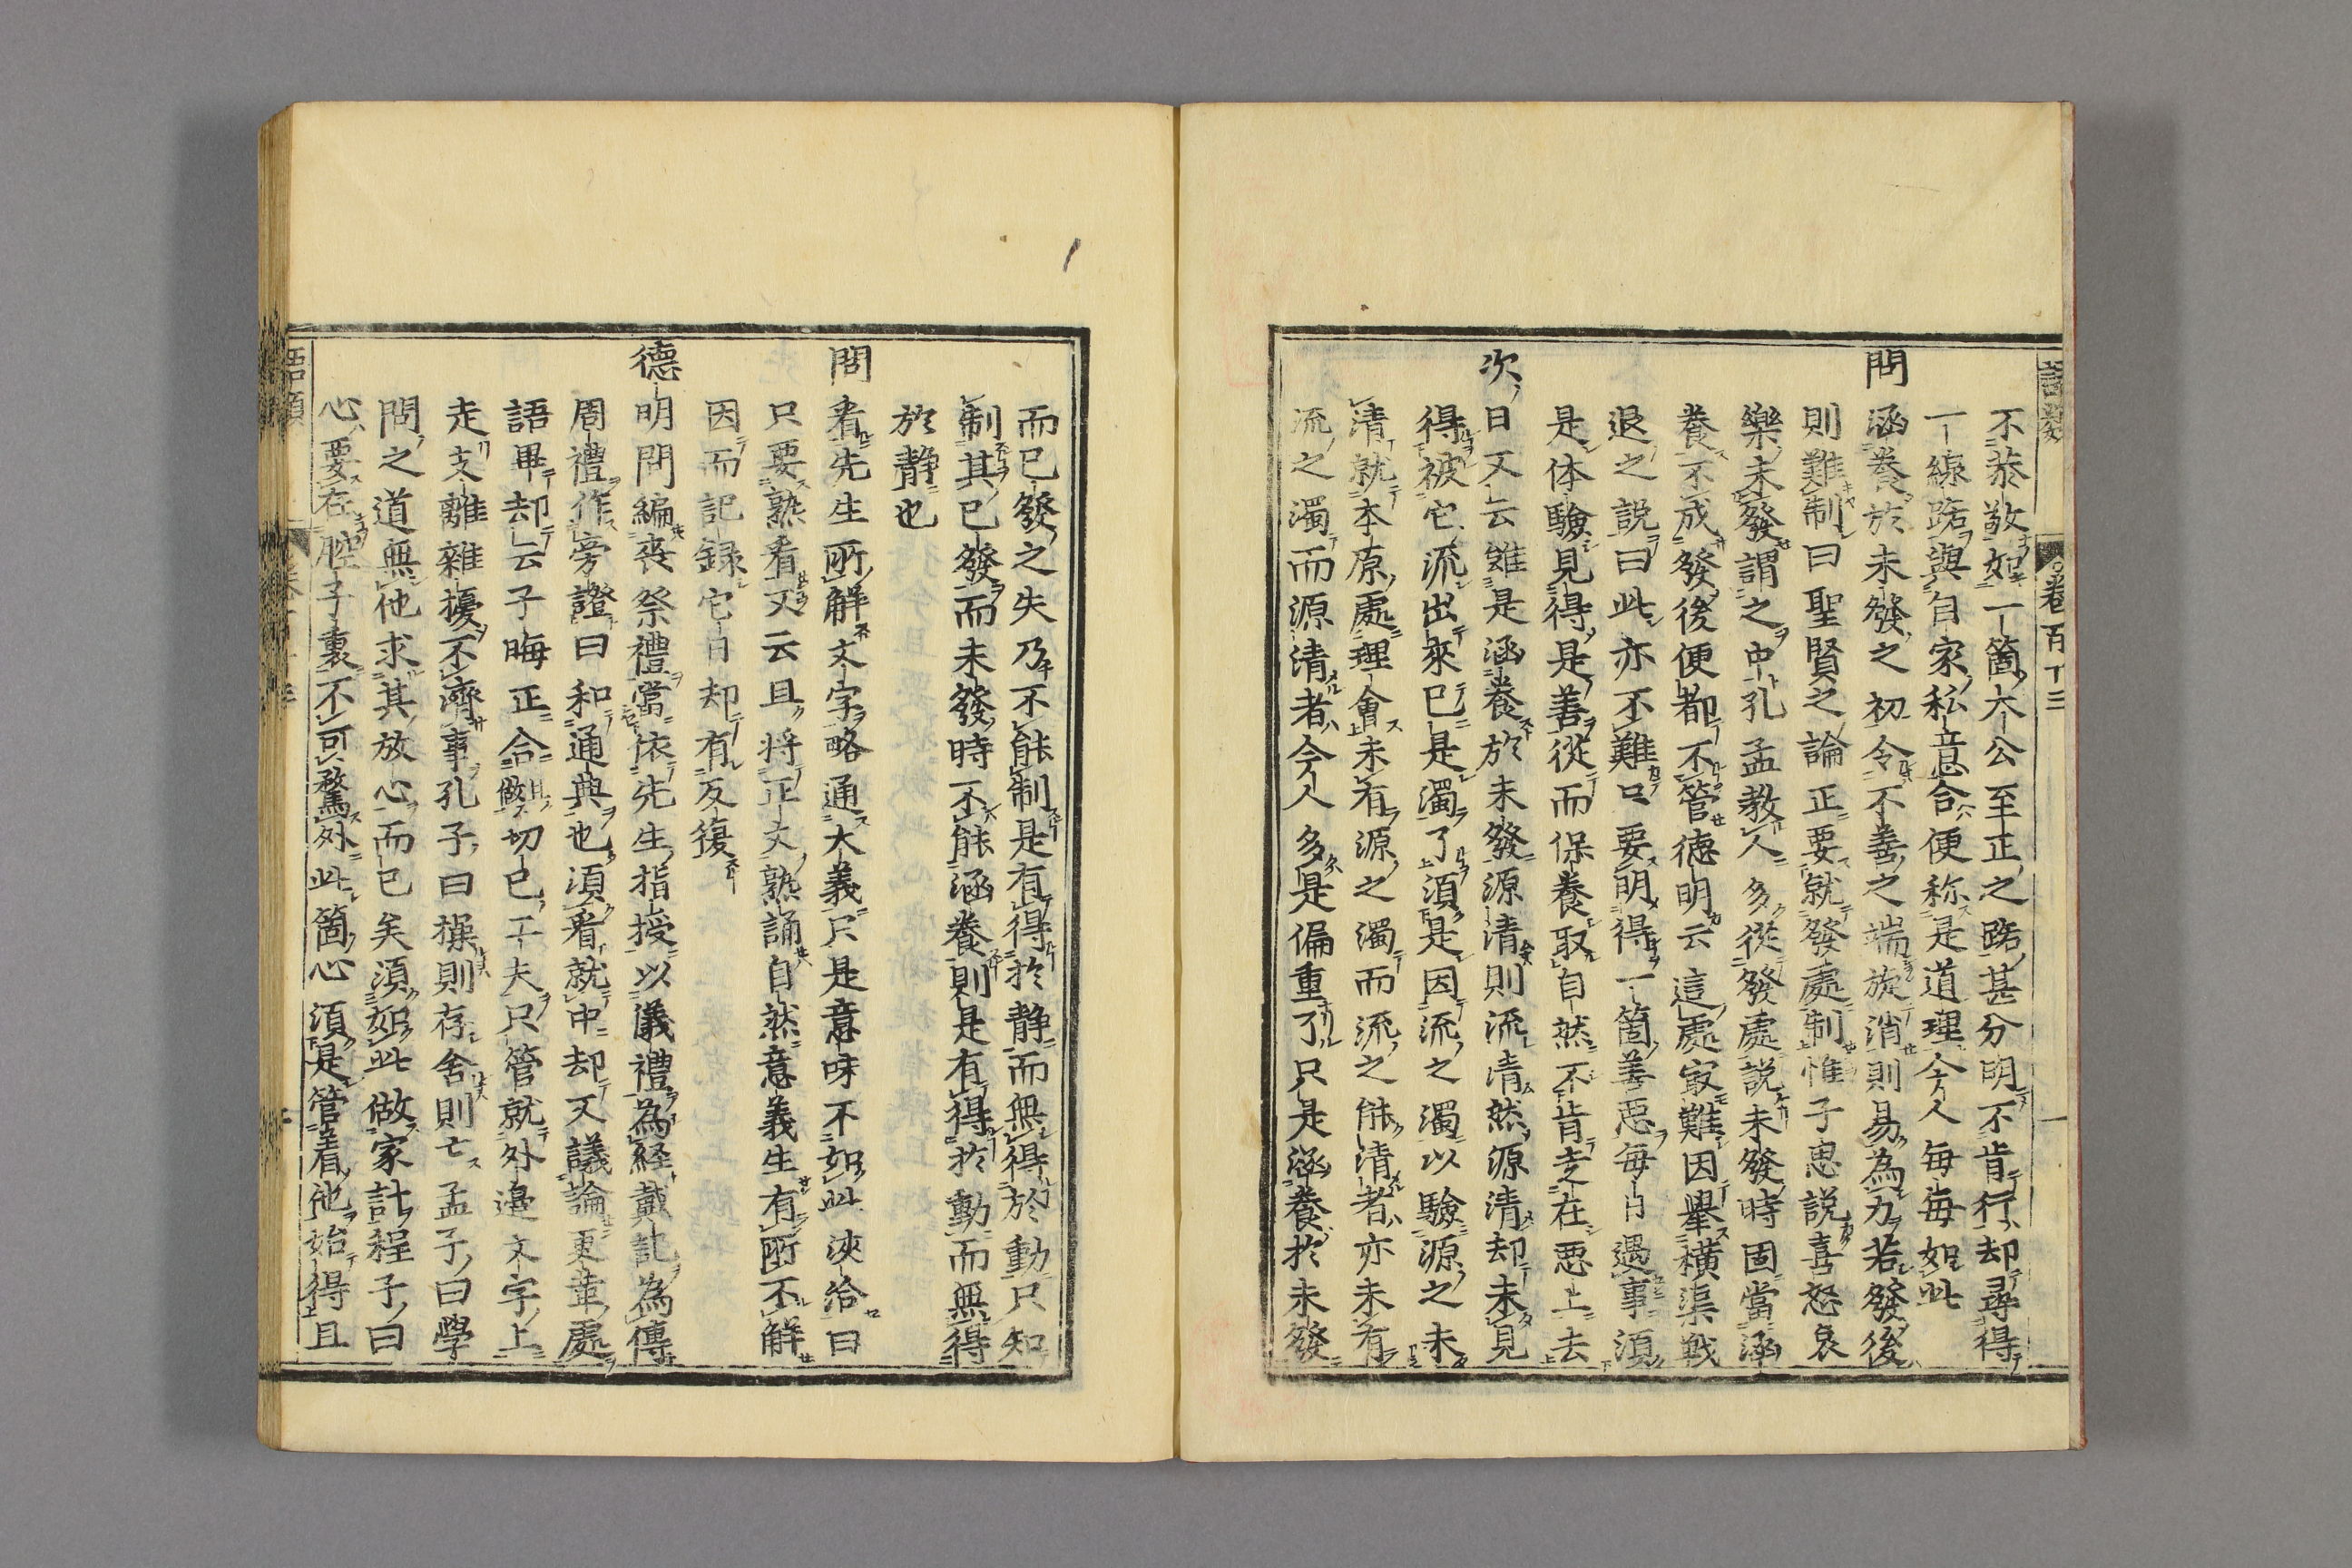 語類 卷百十三 一
不恭敬如一箇大公至正之路甚分明不肯行却尋得
一線路與自家私意合便称是道理今人每每如此
問涵養於未發之初令不善之端旋消則易為力若發後
則難制曰聖賢之論正要就發處制惟子思説喜怒哀
樂未發謂之中孔孟教人多從發處説未發時固當涵
養不成發後便都不管德明云這處寂難因舉横渠戦
退之説曰此亦不難只要明得一箇善惡每日遇事須
是体驗見得是善從而保養取自然不肯走在惡上去
次日又云雖是涵養於未發源清則流清然源清却未見
得被它流出來已是濁了須是因流之濁以驗源之未
清就本原處理會未有源之濁而流之能清者亦未有
流之濁而源清者今人多是偏重了只是涵養於未發
而已發之失乃不能制是有得於静而無得於動只知
制其已發而未發時不能涵養則是有得於動而無得
於静也
問看先生所解文字略通大義只是意味不如此浹洽曰
只要熟看又云且将正文熟誦自然意義生有所不解
因而記録它日却有反復
德明問編喪祭禮當依先生指授以儀禮為経戴記為傳
周禮作旁證曰和通典也須看就中却又議論更革處
語畢却云子晦正合且做切已工夫只管就外邉文字上
走支離雜擾不濟事孔子曰操則存舍則亡孟子曰學
問之道無他求其放心而已矣須如此做家計程子曰
心要在腔子裏不可騖外此箇心須是管着他始得且
語類